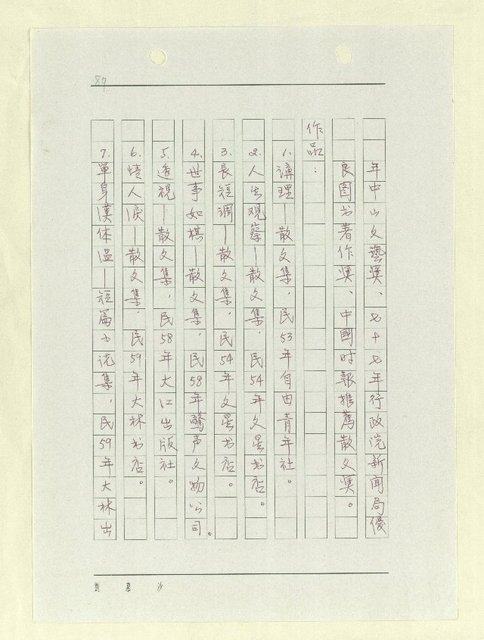 87
年中山文藝獎、七十七年行政院新聞局優
良圖书著作獎、中國时報推薦散文獎。
作品：
1.講理—散文集，民53年自由青年社。
2.人生观察—散文集，民54年文星书店。
3.長短調—散文集，民54年文星书店。
4.世事如棋—散文集，民58年驚声文物公司。
5.透視—散文集，民58年大江出版社。
6.情人淚—散文集，民59年大林书店。
7.單身漢体温—短篇小说集，民59年大林出